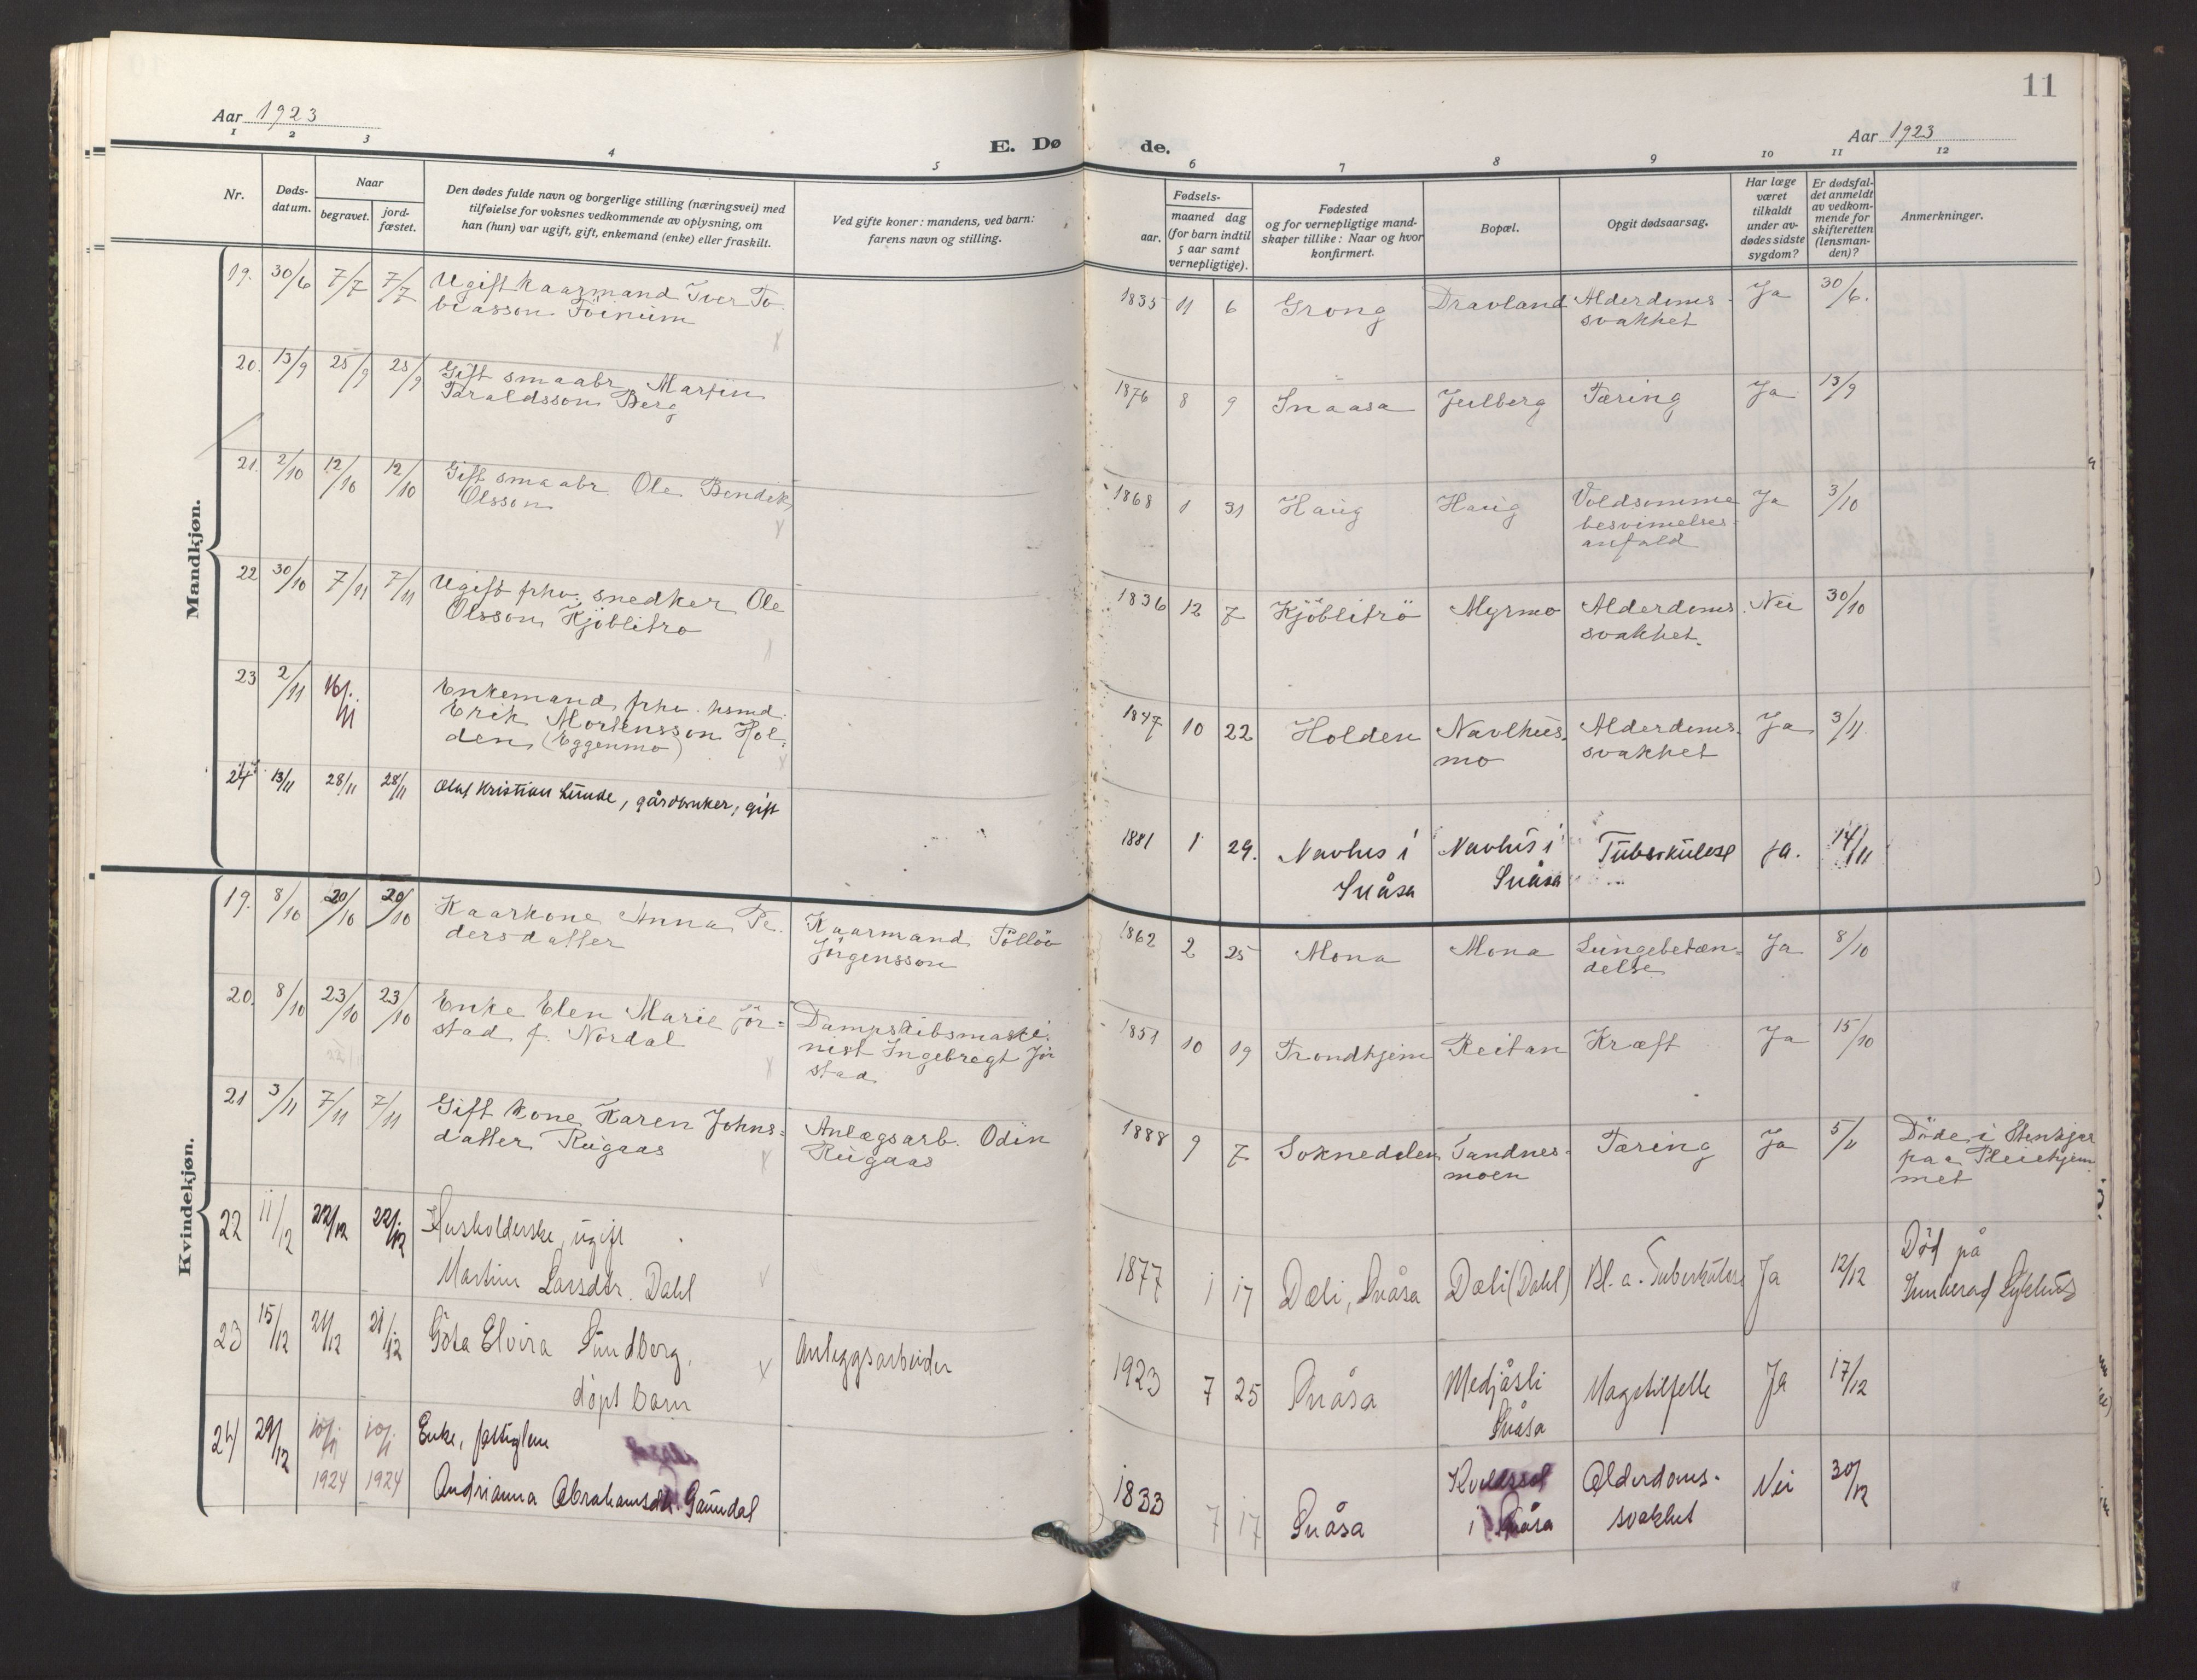 11
Aar 1923
Aar 1923
E. Dø de.
1 2 3 4 5 6 7 8 9 10 11 12
Nr.
Døds-
datum.
Naar
begravet.
jord-
fæstet.
Den dødes fulde navn og borgerlige stilling (næringsvei) med
tilføielse for voksnes vedkommende av oplysning, om
han (hun) var ugift, gift, enkemand (enke) eller fraskilt.
Ved gifte koner: mandens, ved barn:
farens navn og stilling.
Fødsels-
aar.
maaned dag
(for barn indtil
5 aar samt
vernepligtige).
Fødested
og for vernepligtige mand-
skaper tillike: Naar og hvor
konfirmert.
Bopæl.
Opgit dødsaarsag.
Har læge
været
tilkaldt
under av-
dødes sidste
sygdom?
Er dødsfal-
det anmeldt
av vedkom-
mende for
skifteretten
(lensman-
den)?
Anmerkninger.
Mandkjøn.
19. 30/6 7/7 7/7 Ugift kaarmand Iver To-
biasson Föinum
1835 11 6 Grong Dravland Alderdoms-
svakhet
Ja 30/6.
20. 13/9 25/9 25/9 Gift smaabr. Martin
Taraldsson Berg
1876 8 9 Snaasa Julberg Tæring Ja 13/9
21. 2/10 12/10 12/10 Gift smaabr. Ole Bendik
Olsson
1868 1 31 Haug Haug Voldsomme
besvimelses-
anfald
Ja 3/10
22 30/10 7/11 7/11 Ugift fhv. snedker Ole
Olsson Kjöblitrö
1836 12 7 Kjöblitrö Myrmo Alderdoms-
svakhet.
Nei 30/10
23 2/11 16/11 Enkemand, fhv. hsmd.
Erik Mortensson Hol-
den (Eggenmo)
1847 10 22 Holden Navlhus-
mo
Alderdoms-
svakhet
Ja 3/11
24 13/11 28/11 28/11 Olaf Kristian Lunde, gårdbruker, gift
1881 1 29. Navhus i
Snåsa
Navhus i
Snåsa
Tuberkulose ja. 14/11
Kvindekjøn.
19. 8/10 20/10 20/10 Kaarkone Anna Pe-
dersdatter
Kaarmand Tölløv
Jörgensson
1862 2 25 Mona Mona Lungebetæn-
delse
Ja 8/10
20. 8/10 23/10 23/10 Enke Elen Marie Jör-
stad f. Nordal
Dampskibsmaski-
nist Ingebregt Jör
stad
1851 10 19 Trondhjem Reitan Kræft Ja 15/10
21 3/11 7/11 7/11 Gift kone Karen Johns-
datter Rugaas
Anlægsarb. Odin
Rugaas
1888 9 7 Soknedalen Sandnes-
moen
Tæring Ja 5/11 Döde i Stenkjær
paa Pleiehjem-
met
22 11/12 22/12 22/12 Husholderske, ugift
Martine Larsdtr. Dahl
1877 1 17 Dæli, Snåsa Dæli (Dahl) Bl. a. Tuberkulose Ja 12/12 Död på
Innherad Sykehus
23 15/12 21/12 21/12 Gösa Elvira Sundberg,
döpt barn
Anleggsarbeider
1923 7 25 Snåsa Medjåsli
Snåsa
Magetilfelle Ja 17/12
24 29/12 10/1 1924 10/1 1924 Enke, fattiglem
Andrianna Abrahamsdtr. Gaundal
1833 7 17 Snåsa
i Snåsa
Alderdoms-
svakhet
Nei 30/12